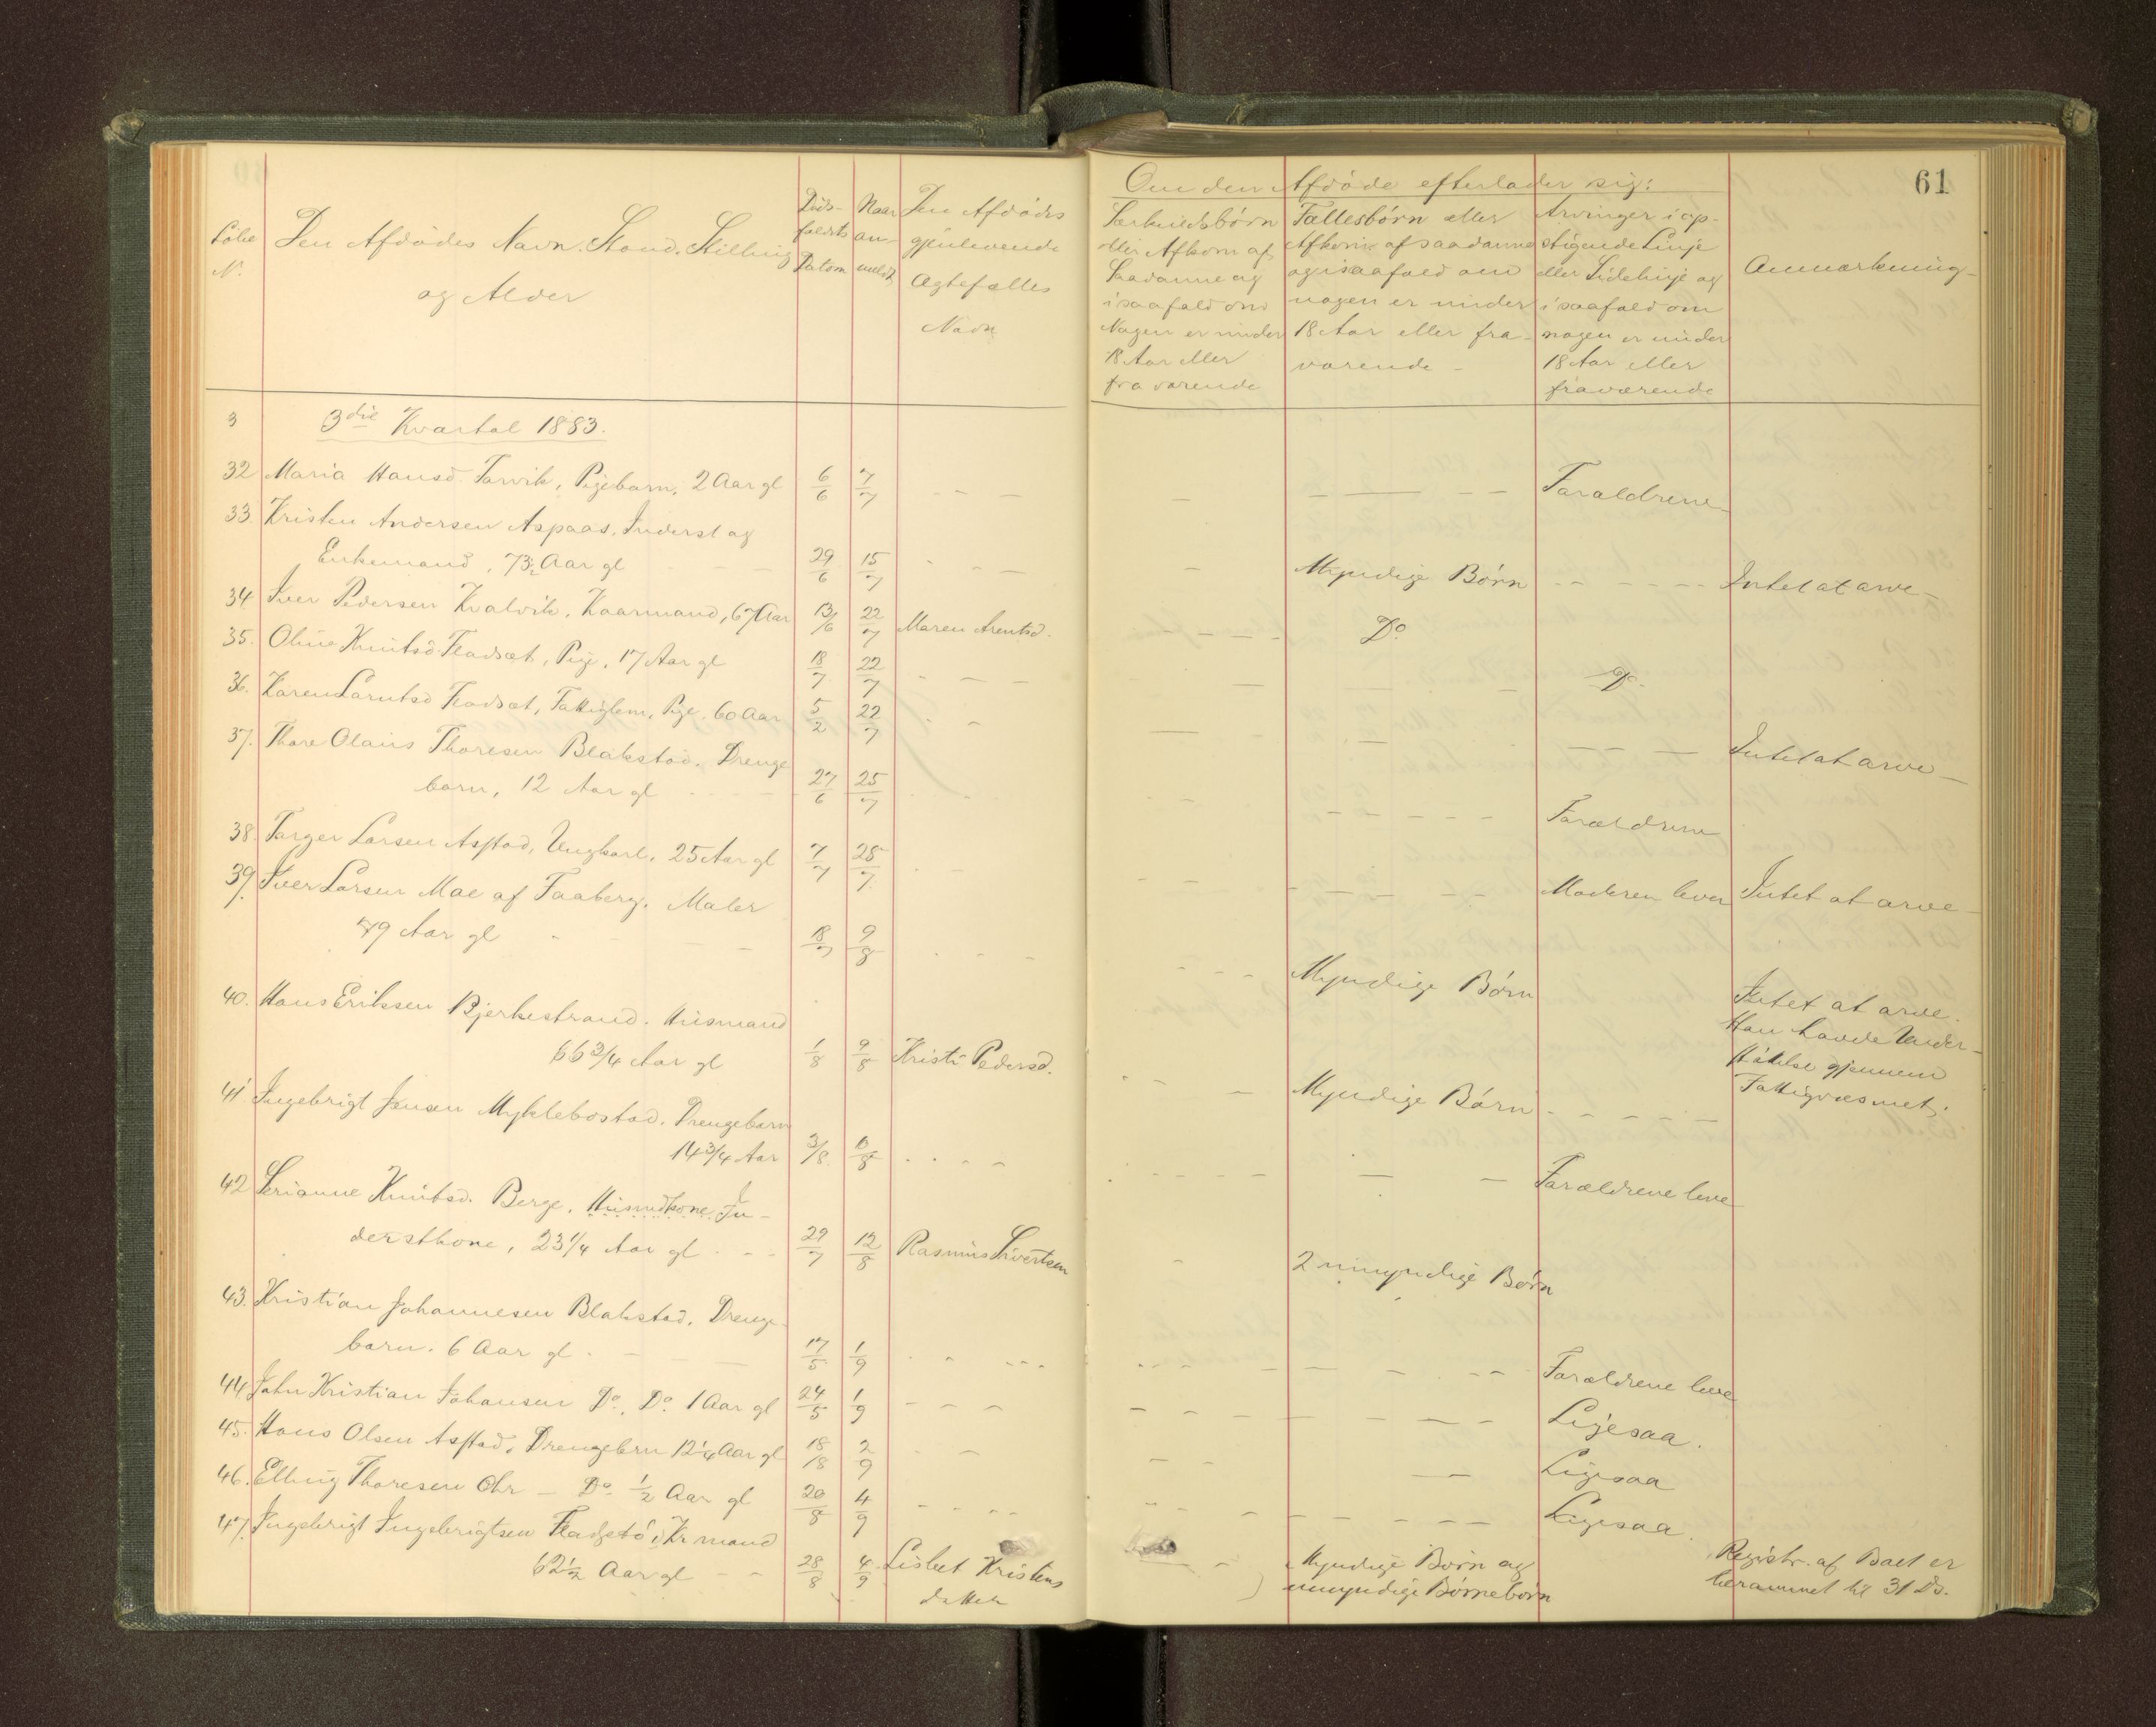 61
Løbe
N.
Den Afdødes Navn. Stand. Stilling
og Alder
Døds-
faldets
Datum
Naar
an-
meldt
Den Afdødes
gjenlevende
Ægtefælles
Navn
Om den Afdøde efterlader sig:
Særkuldsbørn
eller Afkom af
Saadanne og
i saafald om
Nogen er under
18 Aar eller
fraværende
Fællesbørn eller
Afkom af saadanne
og i saafald om
nogen er under
18 Aar eller fra-
værende -
Arvinger i op-
stigende Linje
eller Sidelinje og
i saafald om
nogen er under
18 Aar eller
fraværende
Anmærkning-
3 3die Kvartal 1883.
32 Maria Hansd. Tarvik, Pigebarn, 2 Aar gl 6/6 7/7 Forældrene
33. Kristen Andersen Aspaas, Inderst og
Enkemand, 73½ Aar gl 29/6 15/7 Myndige Børn Intet at arve-
34 Iver Pedersen Kvalvik, Kaarmand, 67 Aar 13/6 22/7 Maren Arentsd. Do
35. Oline Knutsd Fladsæt, Pige, 17 Aar gl 18/7 22/7
36. Karen Larutsd Fladsæt, Fattiglem, Pige, 60 Aar 5/2 22/7 Intet at arve-
37. Thore Olaus Thoresen Blakstad, Drenge
barn, 12 Aar gl 27/6 25/7 Forældrene
38. Torger Larsen Aspstad, Ungkarl, 25 Aar gl 7/7 28/7 Moderen lever Intet at arve-
39. Iver Larsen Moe af Faaberg. Maler
79 Aar gl 18/7 9/8 Myndige Børn Intet at arve.
Han havde Under-
støttelse gjennem
Fattigvæsnet.
40. Hans Eriksen Bjerkestrand. Husmand
66¾ Aar gl 1/8 9/8 Kristi Pedersd. Myndige Børn
41 Ingebrigt Jensen Myklebostad. Drengebarn
14¾ Aar 3/8 Forældrene leve
42 Serianne Knutsd. Berge, Husmdkone In-
dersthone, 23¼ Aar gl 29/7 12/8 Rasmus Sivertsen 2 umyndige Børn
43. Kristian Johannesen Blakstad, Drenge-
barn. 6 Aar gl 17/5 1/9 Forældrene leve
44. John Kristian Johansen Do, Do. 1 Aar gl 24/5 1/9 Ligesaa.
45. Hans Olsen Aspstad, Drengebrn 12¼ Aar gl 18/8 2/9 Ligesaa
46. Elling Thoresen Ohr - Do ½ Aar gl 20/8 4/9 Ligesaa.
47. Ingebrigt Ingebrigtsen Fladsetø, Kr mand
62½ Aar gl 28/8 4/9 Lisbet Kristens
datter
Myndige Børn og
umyndige Børnebørn
Registr. af Boet er
berammet til 31 Ds.